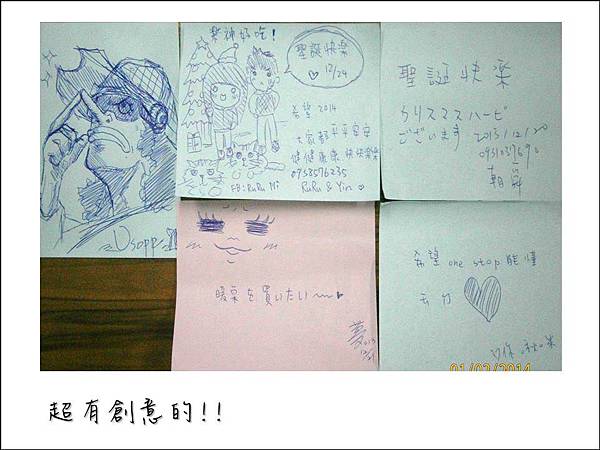 Usopp
好吃!
聖誕快樂
12/24
希望 2014
大家都平平安安
健健康康 快快樂樂
0958576235
FB:RuRu Mi
RuRu & Yin
聖誕快樂
クリスマスハービ
ございます
2013/12/20
朝
暖桌を買いたい~~
夢
2013
12/21
希望 one stop 能懂
01/02/2014
超有創意的!!